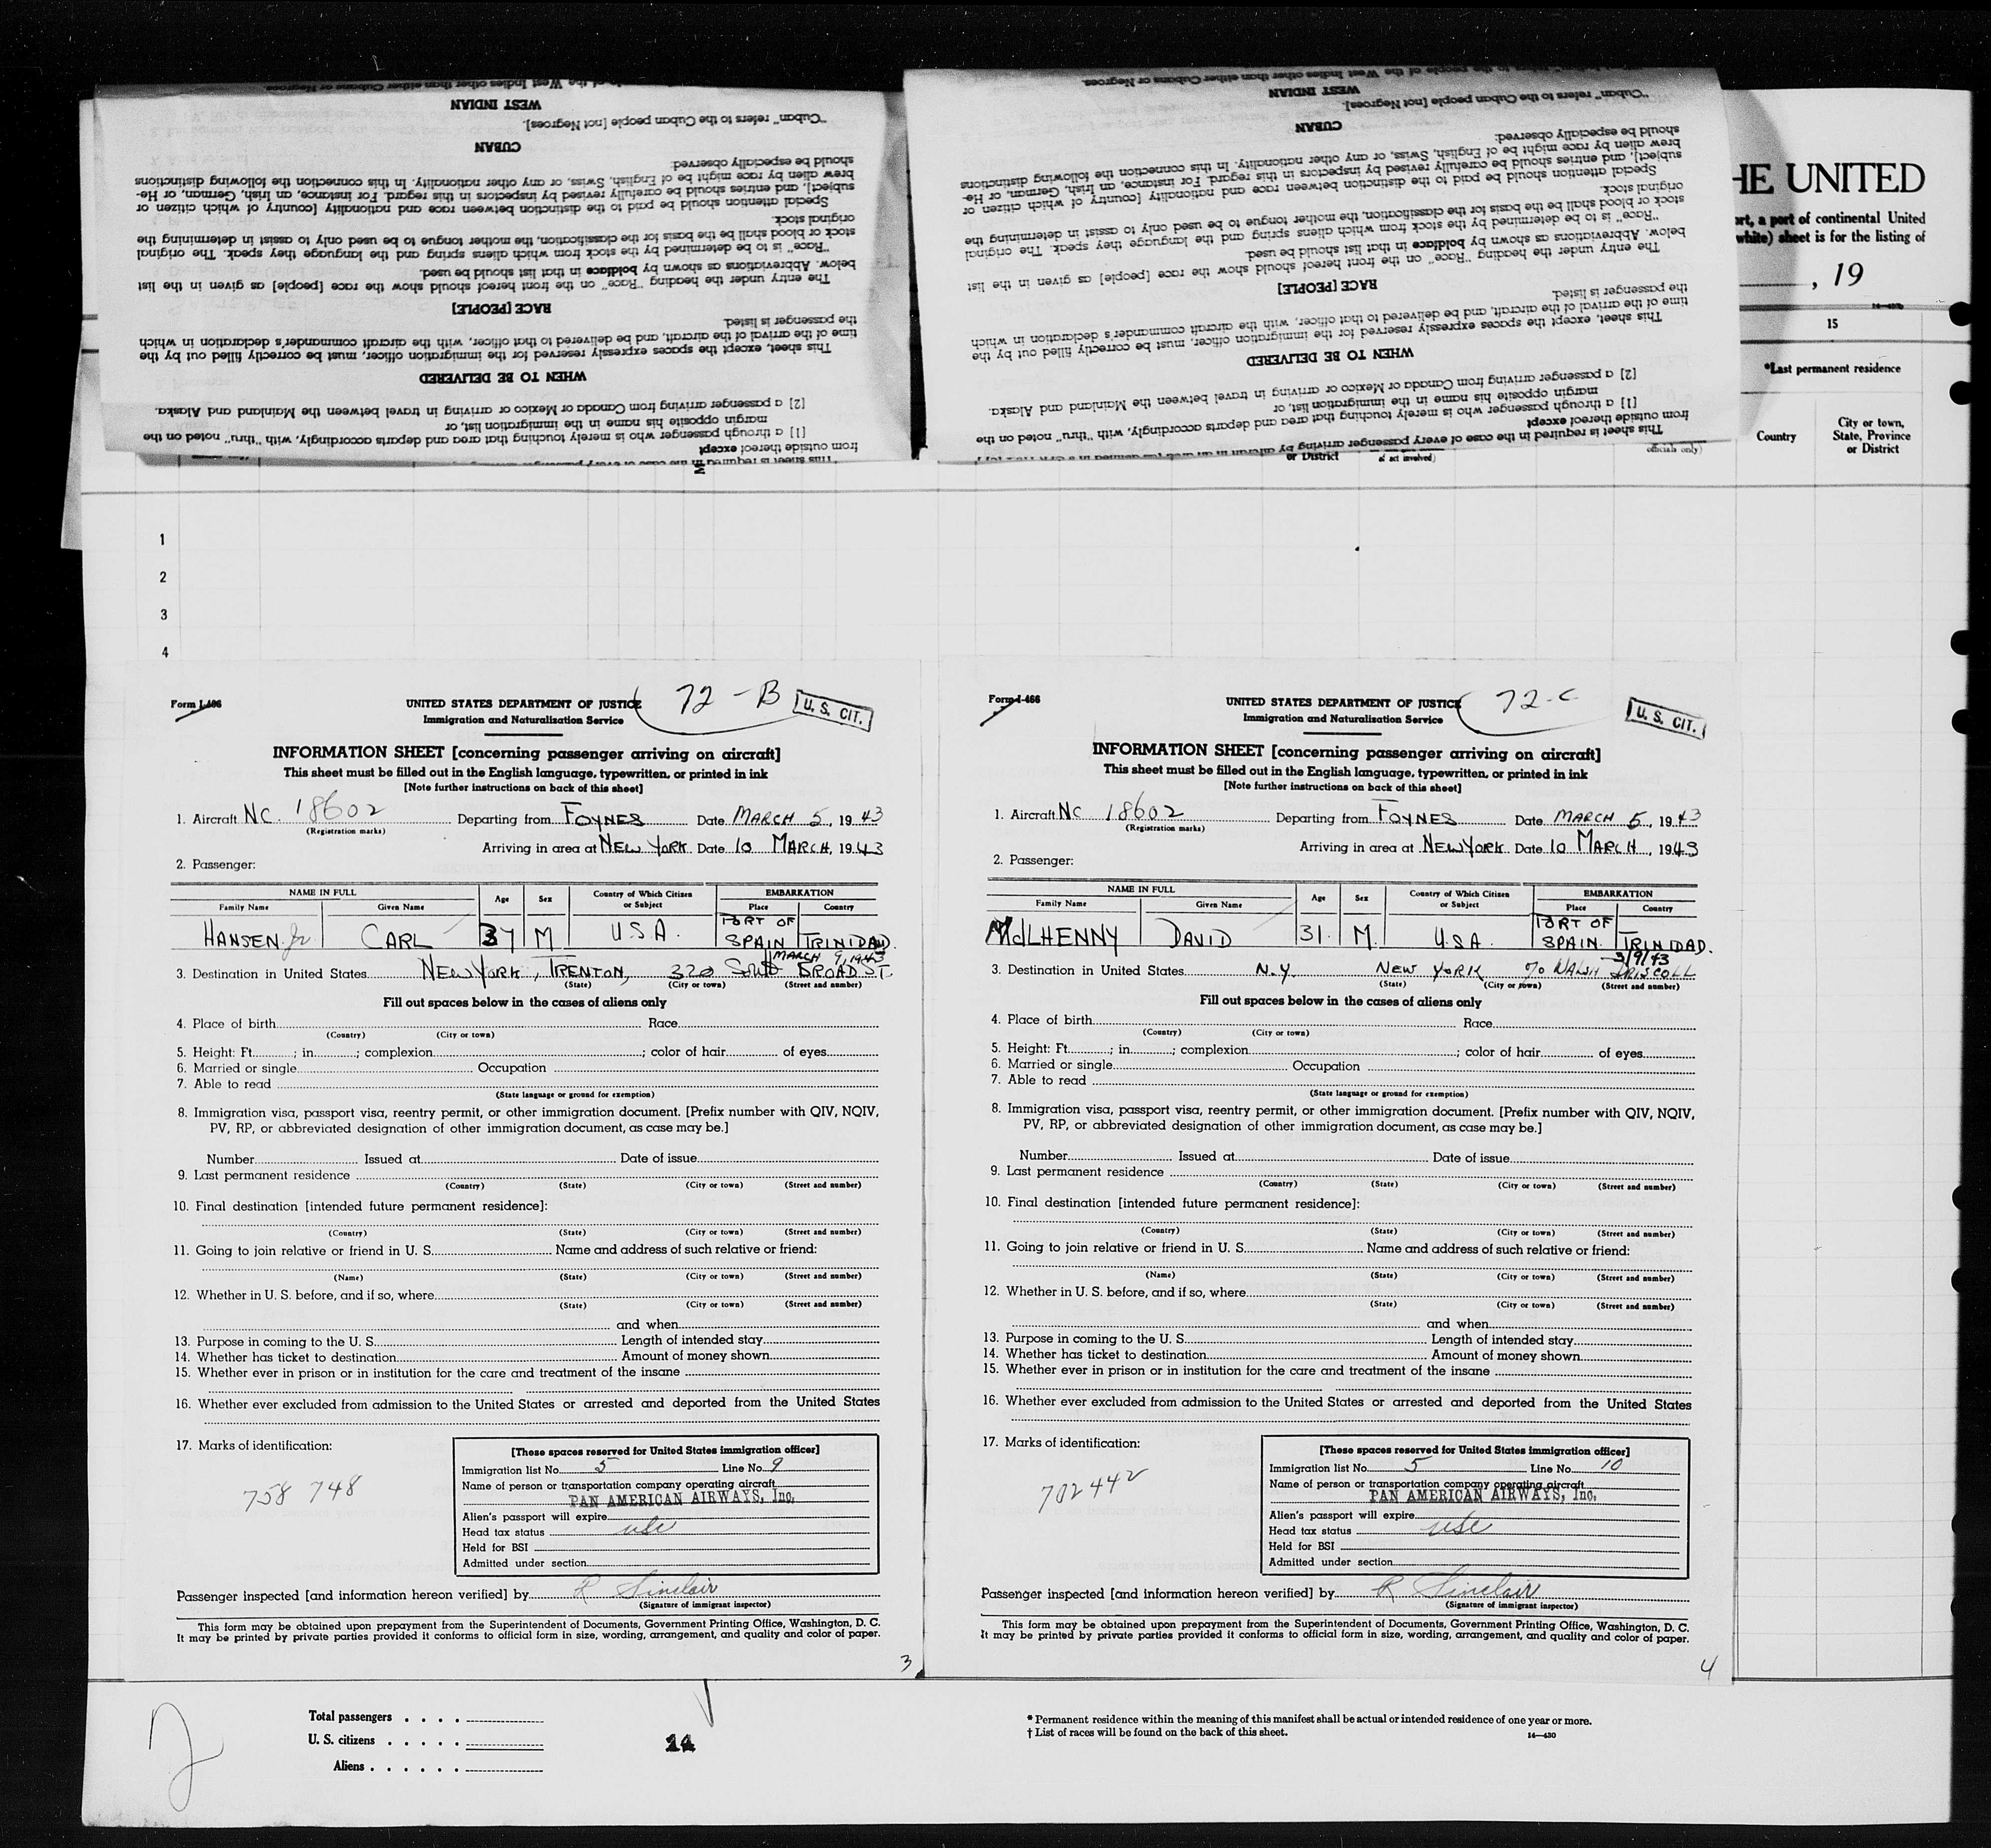 the West Indies other than either Cubans or Negroes.
WEST INDIAN
"Cuban" refers to the Cuban people [not Negroes].
CUBAN
should be especially observed:
brew alien by race might be of English, Swiss, or any other nationality. In this connection the following distinctions
subject], and entries should be carefully revised by inspectors in this regard. For instance, an Irish, German, or He-
Special attention should be paid to the distinction between race and nationality [country of which citizen or
original stock.
stock or blood shall be the basis for the classification, the mother tongue to be used only to assist in determining the
"Race" is to be determined by the stock from which aliens spring and the language they speak. The original
below. Abbreviations as shown by boldface in that list should be used.
The entry under the heading "Race" on the front hereof should show the race [people] as given in the list
RACE [PEOPLE]
the passenger is listed.
time of the arrival of the aircraft, and be delivered to that officer, with the aircraft commander's declaration in which
This sheet, except the spaces expressly reserved for the immigration officer, must be correctly filled out by the
WHEN TO BE DELIVERED
[2] a passenger arriving from Canada or Mexico or arriving in travel between the Mainland and Alaska.
margin opposite his name in the immigration list, or
[1] a through passenger who is merely touching that area and departs accordingly, with "thru" noted on the
from outside thereof except
to the people of the West Indies other than either Cubans or Negroes.
WEST INDIAN
"Cuban" refers to the Cuban people [not Negroes].
CUBAN
should be especially observed:
brew alien by race might be of English, Swiss, or any other nationality. In this connection the following distinctions
subject], and entries should be carefully revised by inspectors in this regard. For instance, an Irish, German, or He-
Special attention should be paid to the distinction between race and nationality [country of which citizen or
original stock.
stock or blood shall be the basis for the classification, the mother tongue to be used only to assist in determining the
"Race" is to be determined by the stock from which aliens spring and the language they speak. The original
below. Abbreviations as shown by boldface in that list should be used.
The entry under the heading "Race" on the front hereof should show the race [people] as given in the list
RACE [PEOPLE]
the passenger is listed.
time of the arrival of the aircraft, and be delivered to that officer, with the aircraft commander's declaration in which
This sheet, except the spaces expressly reserved for the immigration officer, must be correctly filled out by the
WHEN TO BE DELIVERED
[2] a passenger arriving from Canada or Mexico or arriving in travel between the Mainland and Alaska.
margin opposite his name in the immigration list, or
[1] a through passenger who is merely touching that area and departs accordingly, with "thru" noted on the
from outside thereof except
This sheet is required in the case of every passenger arriving by aircraft in an area
or District
of act involved)
officials only)
HE UNITED
ort, a port of continental United
white) sheet is for the listing of
, 19
15
*Last permanent residence
Country
City or town,
State, Province
or District
1
2
3
4
Form I-466
UNITED STATES DEPARTMENT OF JUSTICE
72-B
U. S. CIT.
Immigration and Naturalization Service
INFORMATION SHEET [concerning passenger arriving on aircraft]
This sheet must be filled out in the English language, typewritten, or printed in ink
[Note further instructions on back of this sheet]
1. Aircraft NC. 18602 Departing from FOYNES Date MARCH 5, 1943
(Registration marks)
Arriving in area at NEW YORK Date 10 MARCH, 1943
2. Passenger:
NAME IN FULL Age Sex Country of Which Citizen or Subject EMBARKATION
Family Name Given Name Place Country
HANSEN Jr CARL 37 M U.S.A. PORT OF SPAIN TRINIDAD.
MARCH 9, 1943
3. Destination in United States NEW YORK, TRENTON, 320 South BROAD ST.
(State) (City or town) (Street and number)
Fill out spaces below in the cases of aliens only
4. Place of birth Race
(Country) (City or town)
5. Height: Ft. ; in. ; complexion ; color of hair of eyes
6. Married or single Occupation
7. Able to read
(State language or ground for exemption)
8. Immigration visa, passport visa, reentry permit, or other immigration document. [Prefix number with QIV, NQIV,
PV, RP, or abbreviated designation of other immigration document, as case may be.]
Number Issued at Date of issue
9. Last permanent residence
(Country) (State) (City or town) (Street and number)
10. Final destination [intended future permanent residence]:
(Country) (State) (City or town) (Street and number)
11. Going to join relative or friend in U. S. Name and address of such relative or friend:
(Name) (State) (City or town) (Street and number)
12. Whether in U. S. before, and if so, where
(State) (City or town) (Street and number)
and when
13. Purpose in coming to the U. S. Length of intended stay
14. Whether has ticket to destination Amount of money shown
15. Whether ever in prison or in institution for the care and treatment of the insane
16. Whether ever excluded from admission to the United States or arrested and deported from the United States
17. Marks of identification:
758 748
[These spaces reserved for United States immigration officer]
Immigration list No. 5 Line No. 9
Name of person or transportation company operating aircraft
PAN AMERICAN AIRWAYS, Inc.
Alien's passport will expire
Head tax status usc
Held for BSI
Admitted under section
Passenger inspected [and information hereon verified] by R Sinclair
(Signature of immigrant inspector)
This form may be obtained upon prepayment from the Superintendent of Documents, Government Printing Office, Washington, D. C.
It may be printed by private parties provided it conforms to official form in size, wording, arrangement, and quality and color of paper.
3
Form I-466
UNITED STATES DEPARTMENT OF JUSTICE
72-C
U. S. CIT.
Immigration and Naturalization Service
INFORMATION SHEET [concerning passenger arriving on aircraft]
This sheet must be filled out in the English language, typewritten, or printed in ink
[Note further instructions on back of this sheet]
1. Aircraft NC 18602 Departing from FOYNES Date MARCH 5, 1943
(Registration marks)
Arriving in area at NEW YORK Date 10 MARCH, 1943
2. Passenger:
NAME IN FULL Age Sex Country of Which Citizen or Subject EMBARKATION
Family Name Given Name Place Country
McILHENNY DAVID 31. M. U.S.A. PORT OF SPAIN. TRINIDAD.
3/9/43
3. Destination in United States N.Y. NEW YORK % WALSH DRISCOLL
(State) (City or town) (Street and number)
Fill out spaces below in the cases of aliens only
4. Place of birth Race
(Country) (City or town)
5. Height: Ft. ; in. ; complexion ; color of hair of eyes
6. Married or single Occupation
7. Able to read
(State language or ground for exemption)
8. Immigration visa, passport visa, reentry permit, or other immigration document. [Prefix number with QIV, NQIV,
PV, RP, or abbreviated designation of other immigration document, as case may be.]
Number Issued at Date of issue
9. Last permanent residence
(Country) (State) (City or town) (Street and number)
10. Final destination [intended future permanent residence]:
(Country) (State) (City or town) (Street and number)
11. Going to join relative or friend in U. S. Name and address of such relative or friend:
(Name) (State) (City or town) (Street and number)
12. Whether in U. S. before, and if so, where
(State) (City or town) (Street and number)
and when
13. Purpose in coming to the U. S. Length of intended stay
14. Whether has ticket to destination Amount of money shown
15. Whether ever in prison or in institution for the care and treatment of the insane
16. Whether ever excluded from admission to the United States or arrested and deported from the United States
17. Marks of identification:
702442
[These spaces reserved for United States immigration officer]
Immigration list No. 5 Line No. 10
Name of person or transportation company operating aircraft
PAN AMERICAN AIRWAYS, Inc.
Alien's passport will expire
Head tax status usc
Held for BSI
Admitted under section
Passenger inspected [and information hereon verified] by R Sinclair
(Signature of immigrant inspector)
This form may be obtained upon prepayment from the Superintendent of Documents, Government Printing Office, Washington, D. C.
It may be printed by private parties provided it conforms to official form in size, wording, arrangement, and quality and color of paper.
4
2
Total passengers
U. S. citizens
Aliens
* Permanent residence within the meaning of this manifest shall be actual or intended residence of one year or more.
† List of races will be found on the back of this sheet.